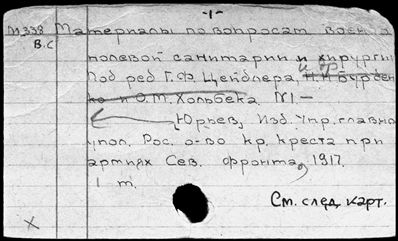 -1-
М338 Материалы по вопросам воен
В.С
полевой санитарии и хирургии
Под ред Г.Ф. Цейдлера, и др Н.Н Бурден
ко и О.М. Хольбека. №1-
Юрьев, Изд. Упр. главно
упол. Рос. о-во кр. креста при
армиях Сев. фронта, 1917.
1 т.
См. след. карт.
X